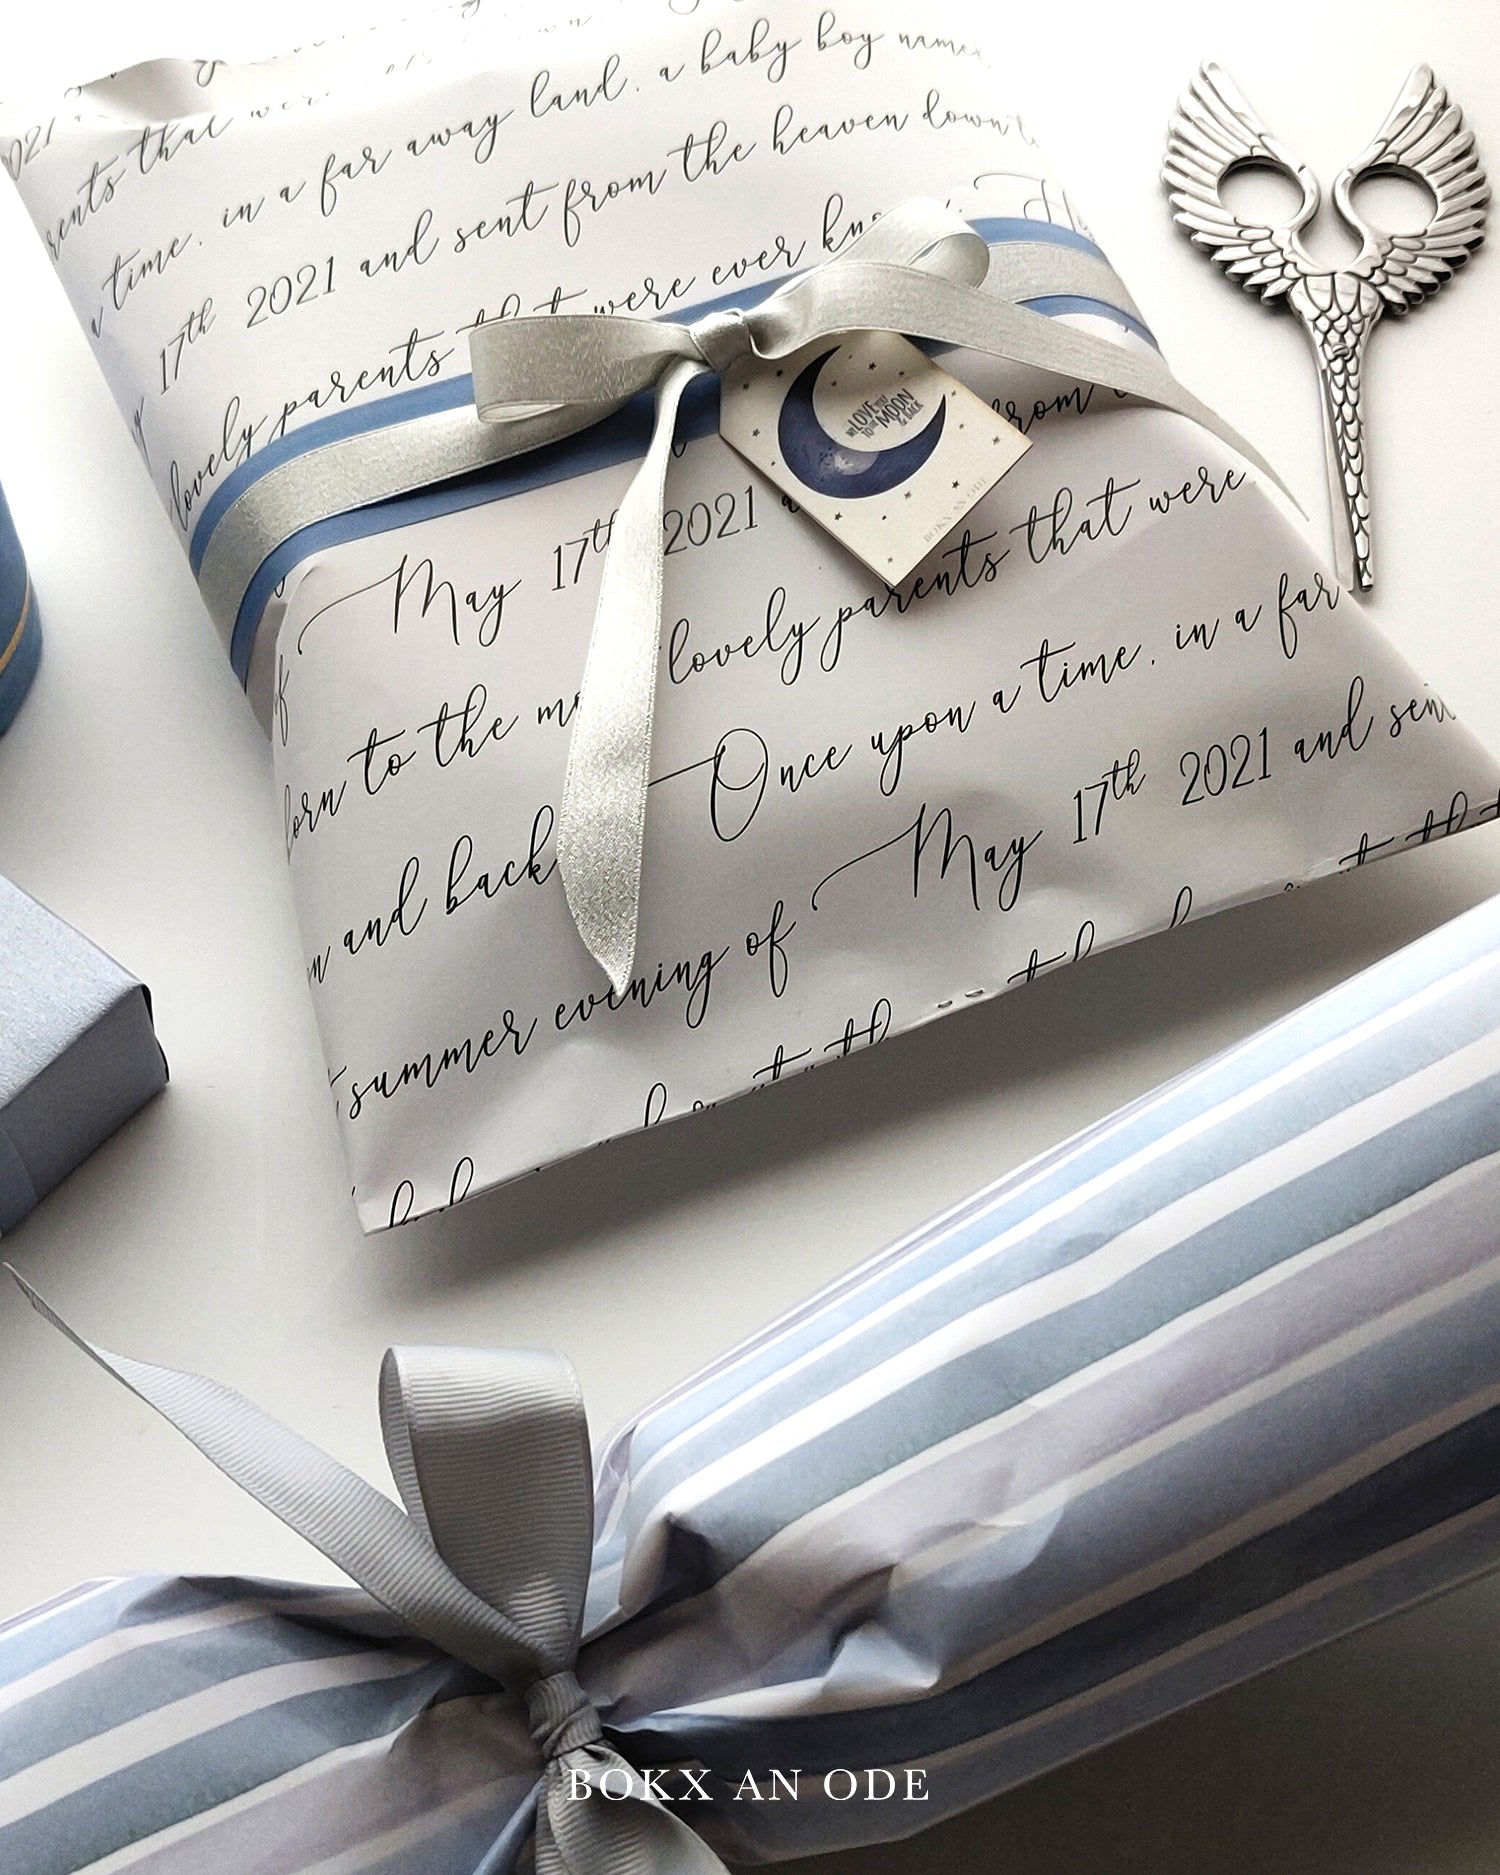 2021
parents that were
a time, in a far away land, a baby boy named
17th 2021 and sent from the heaven down t
lovely parents that were ever kno
from
May 17th 2021 a
of
born to the mo lovely parents that were
and back Once upon a time, in a far
summer evening of May 17th 2021 and sent
WE LOVE YOU
TO THE MOON
& BACK
BOKX AN ODE
BOKX AN ODE